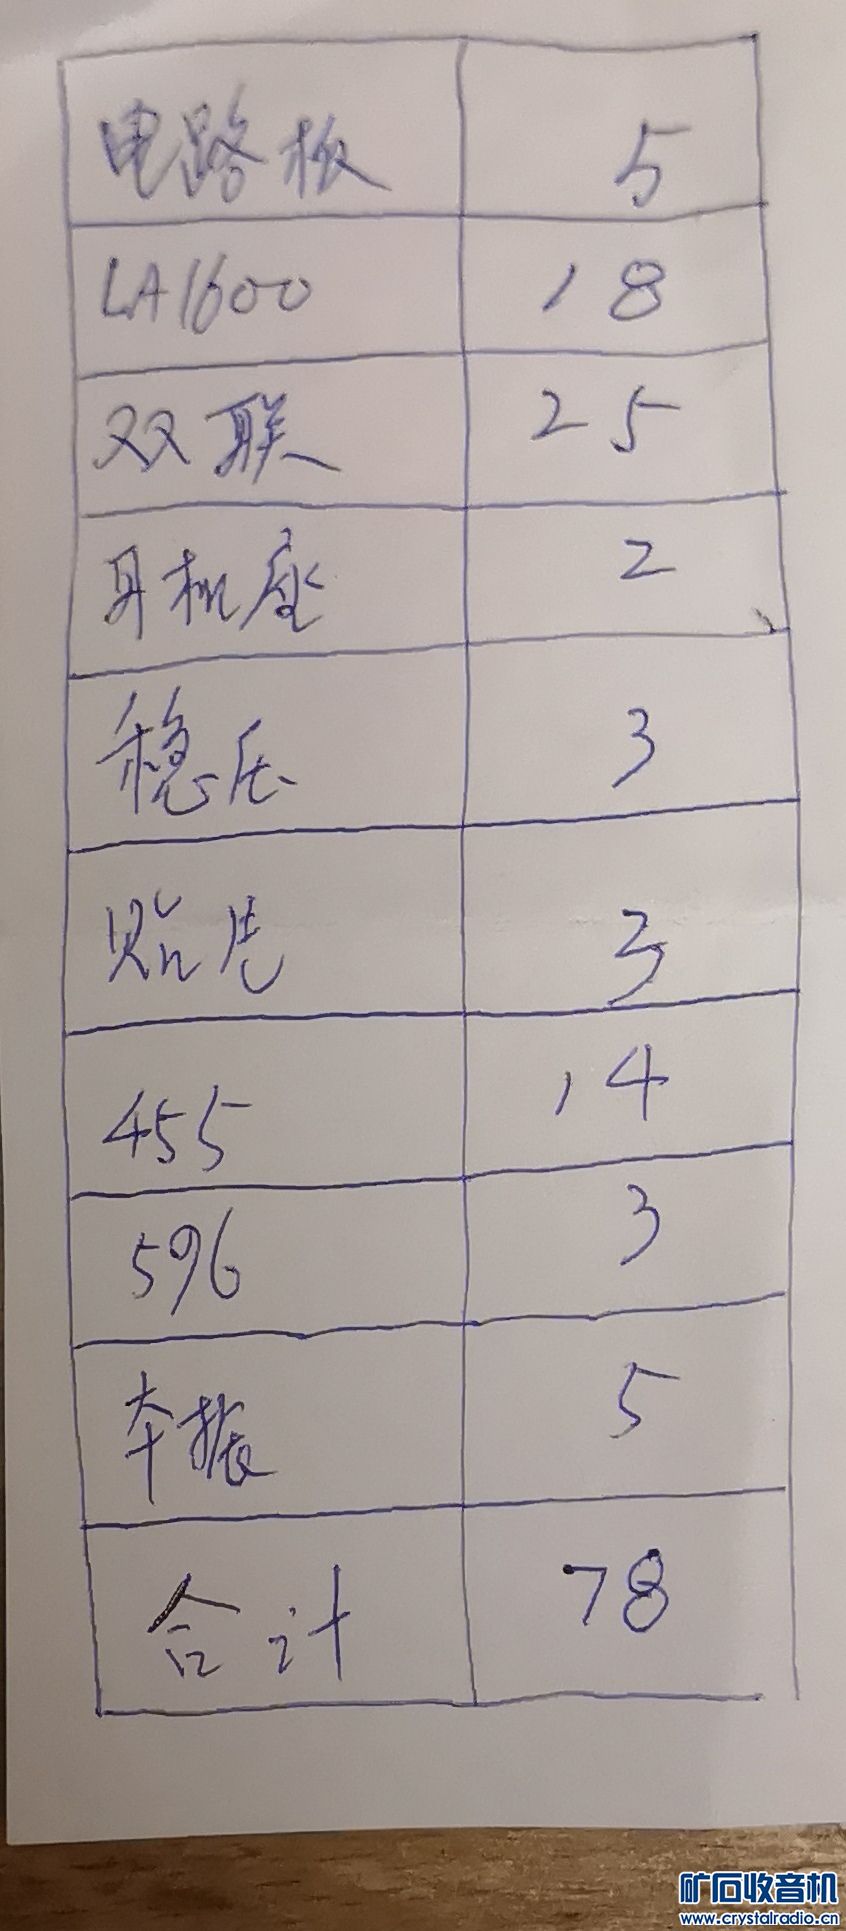 电路板 5
LA1600 18
双联 25
耳机座 2
稳压 3
贴片 3
455 14
596 3
本振 5
合计 78
矿石收音机
www.crystalradio.cn